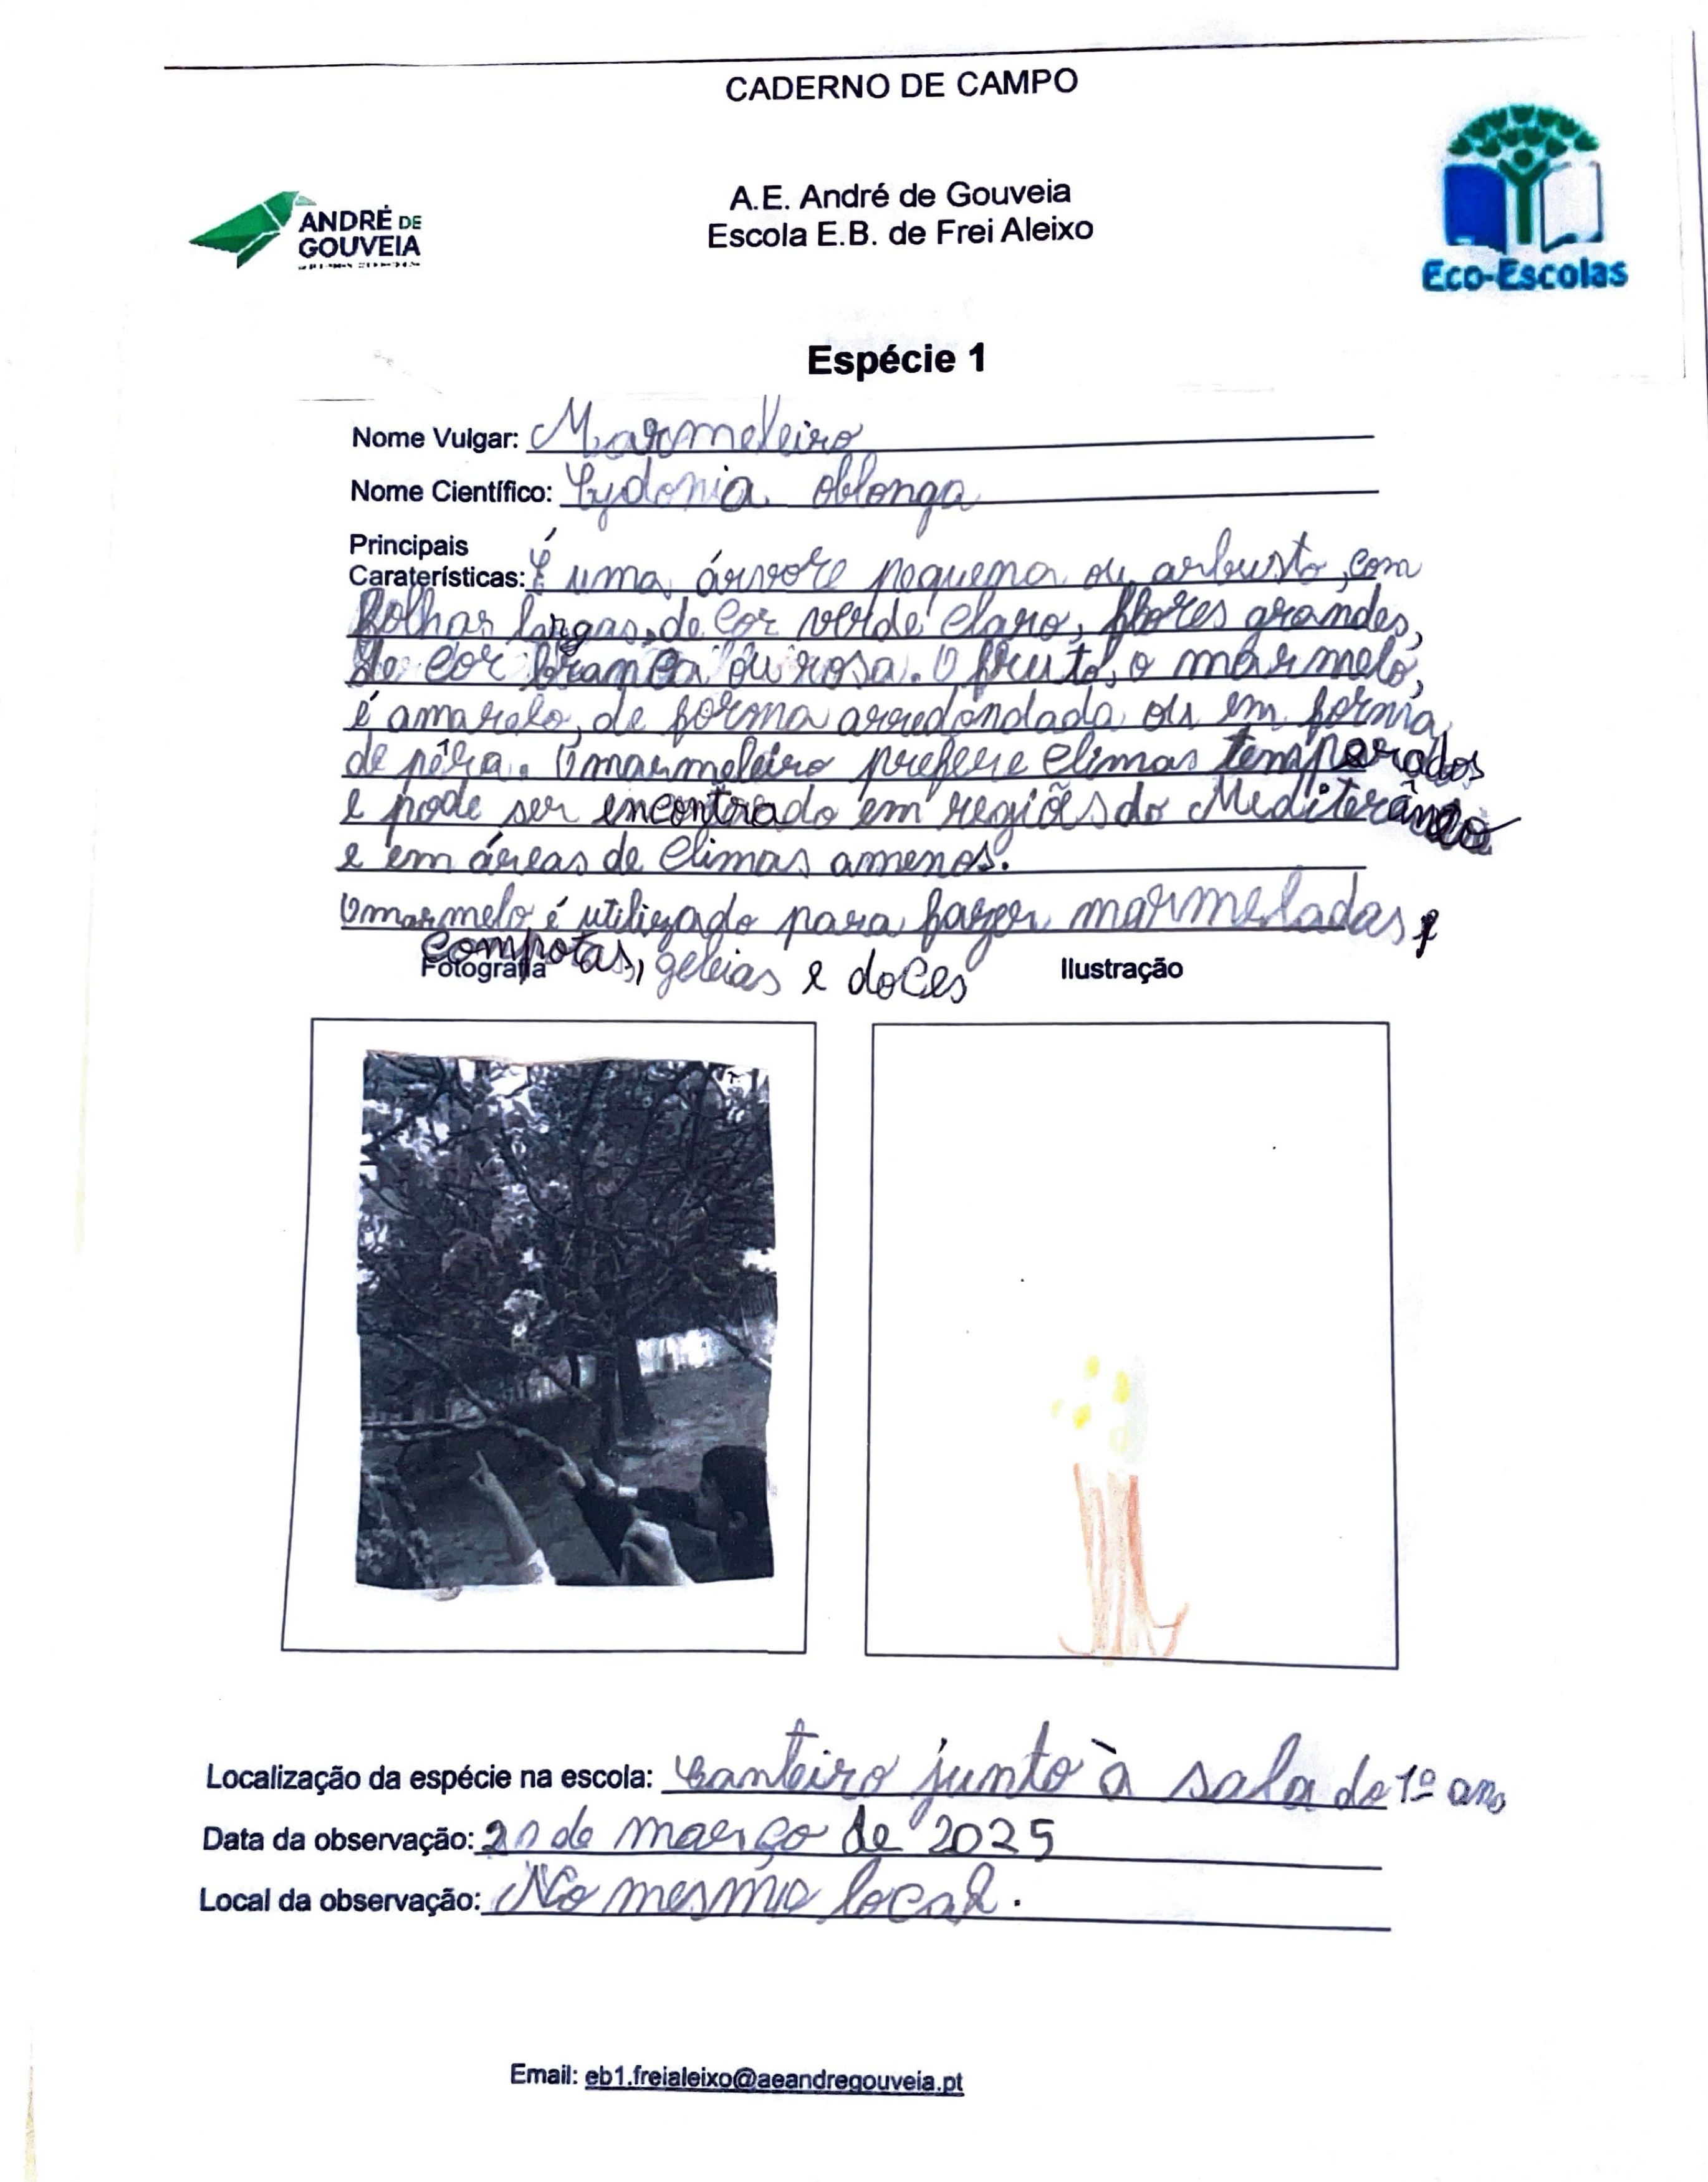 CADERNO DE CAMPO
ANDRÉ DE
GOUVEIA
A.E. André de Gouveia
Escola E.B. de Frei Aleixo
Eco-Escolas
Espécie 1
Nome Vulgar: Marmeleiro
Nome Científico: Cydonia oblonga
Principais
Caraterísticas: É uma árvore pequena ou arbusto, com
folhas largas, de cor verde claro, flores grandes,
de cor branca ou rosa. O fruto, o marmelo,
é amarelo, de forma arredondada ou em forma
de pêra. O marmeleiro prefere climas temperados
e pode ser encontrado em regiões do Mediterâneo
e em áreas de climas amenos.
O marmelo é utilizado para fazer marmeladas,
compotas, geleias e doces
Fotografia
Ilustração
Localização da espécie na escola: Canteiro junto à sala do 1º ano
Data da observação: 21 de março de 2025
Local da observação: No mesmo local.
Email: eb1.freialeixo@aeandregouveia.pt